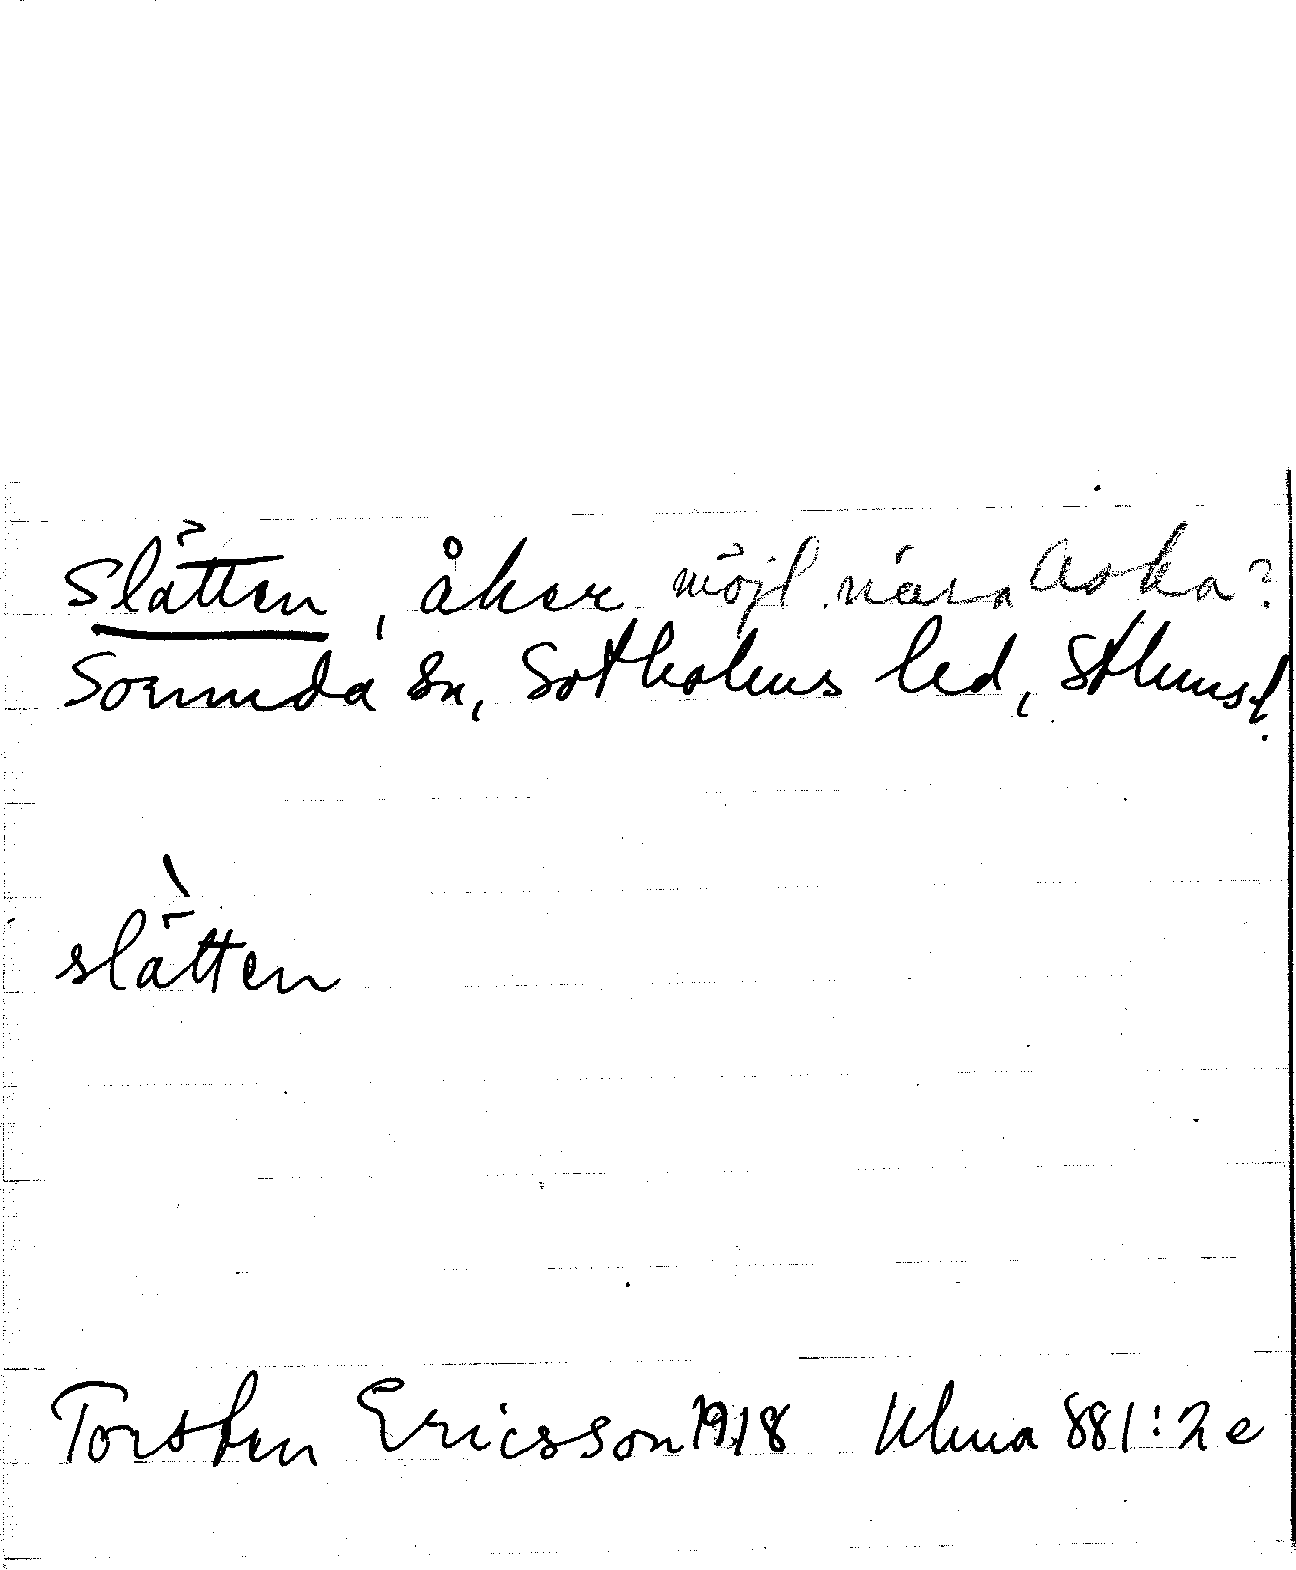 Slätten, åker möjl. nära Aska?
Sorunda sn, Sotholms hd, Sthmsl.
slätten
Torsten Ericsson 1918 Ulma 881:2e